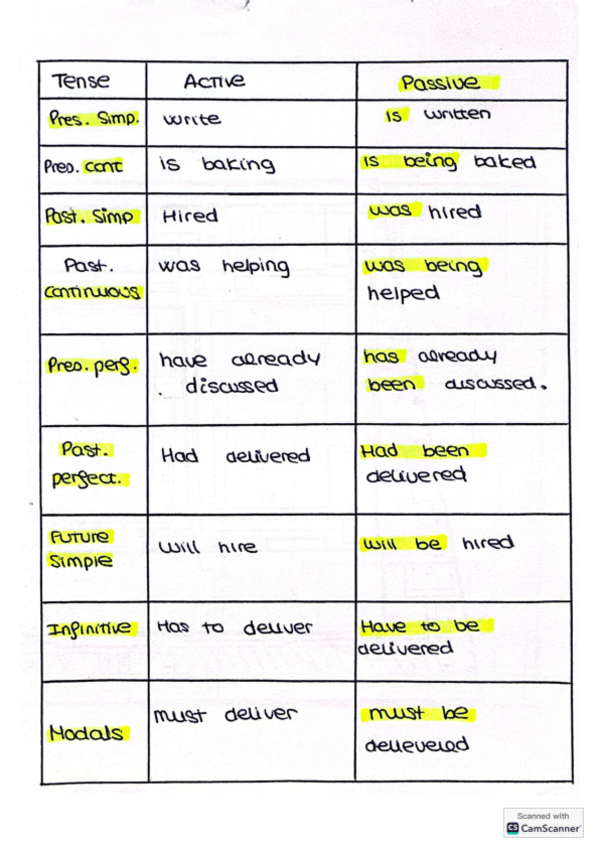 Tense Active Passive
Pres. Simp. write is written
Pres. cont is baking is being baked
Past. Simp Hired was hired
Past. was helping was being
continuous helped
Pres. perf. have already has already
discussed been discussed.
Past. Had delivered Had been
perfect. delivered
Future
Simple will hire will be hired
Infinitive Has to deliver Have to be
delivered
Modals must deliver must be
delievered
Scanned with
CS CamScanner